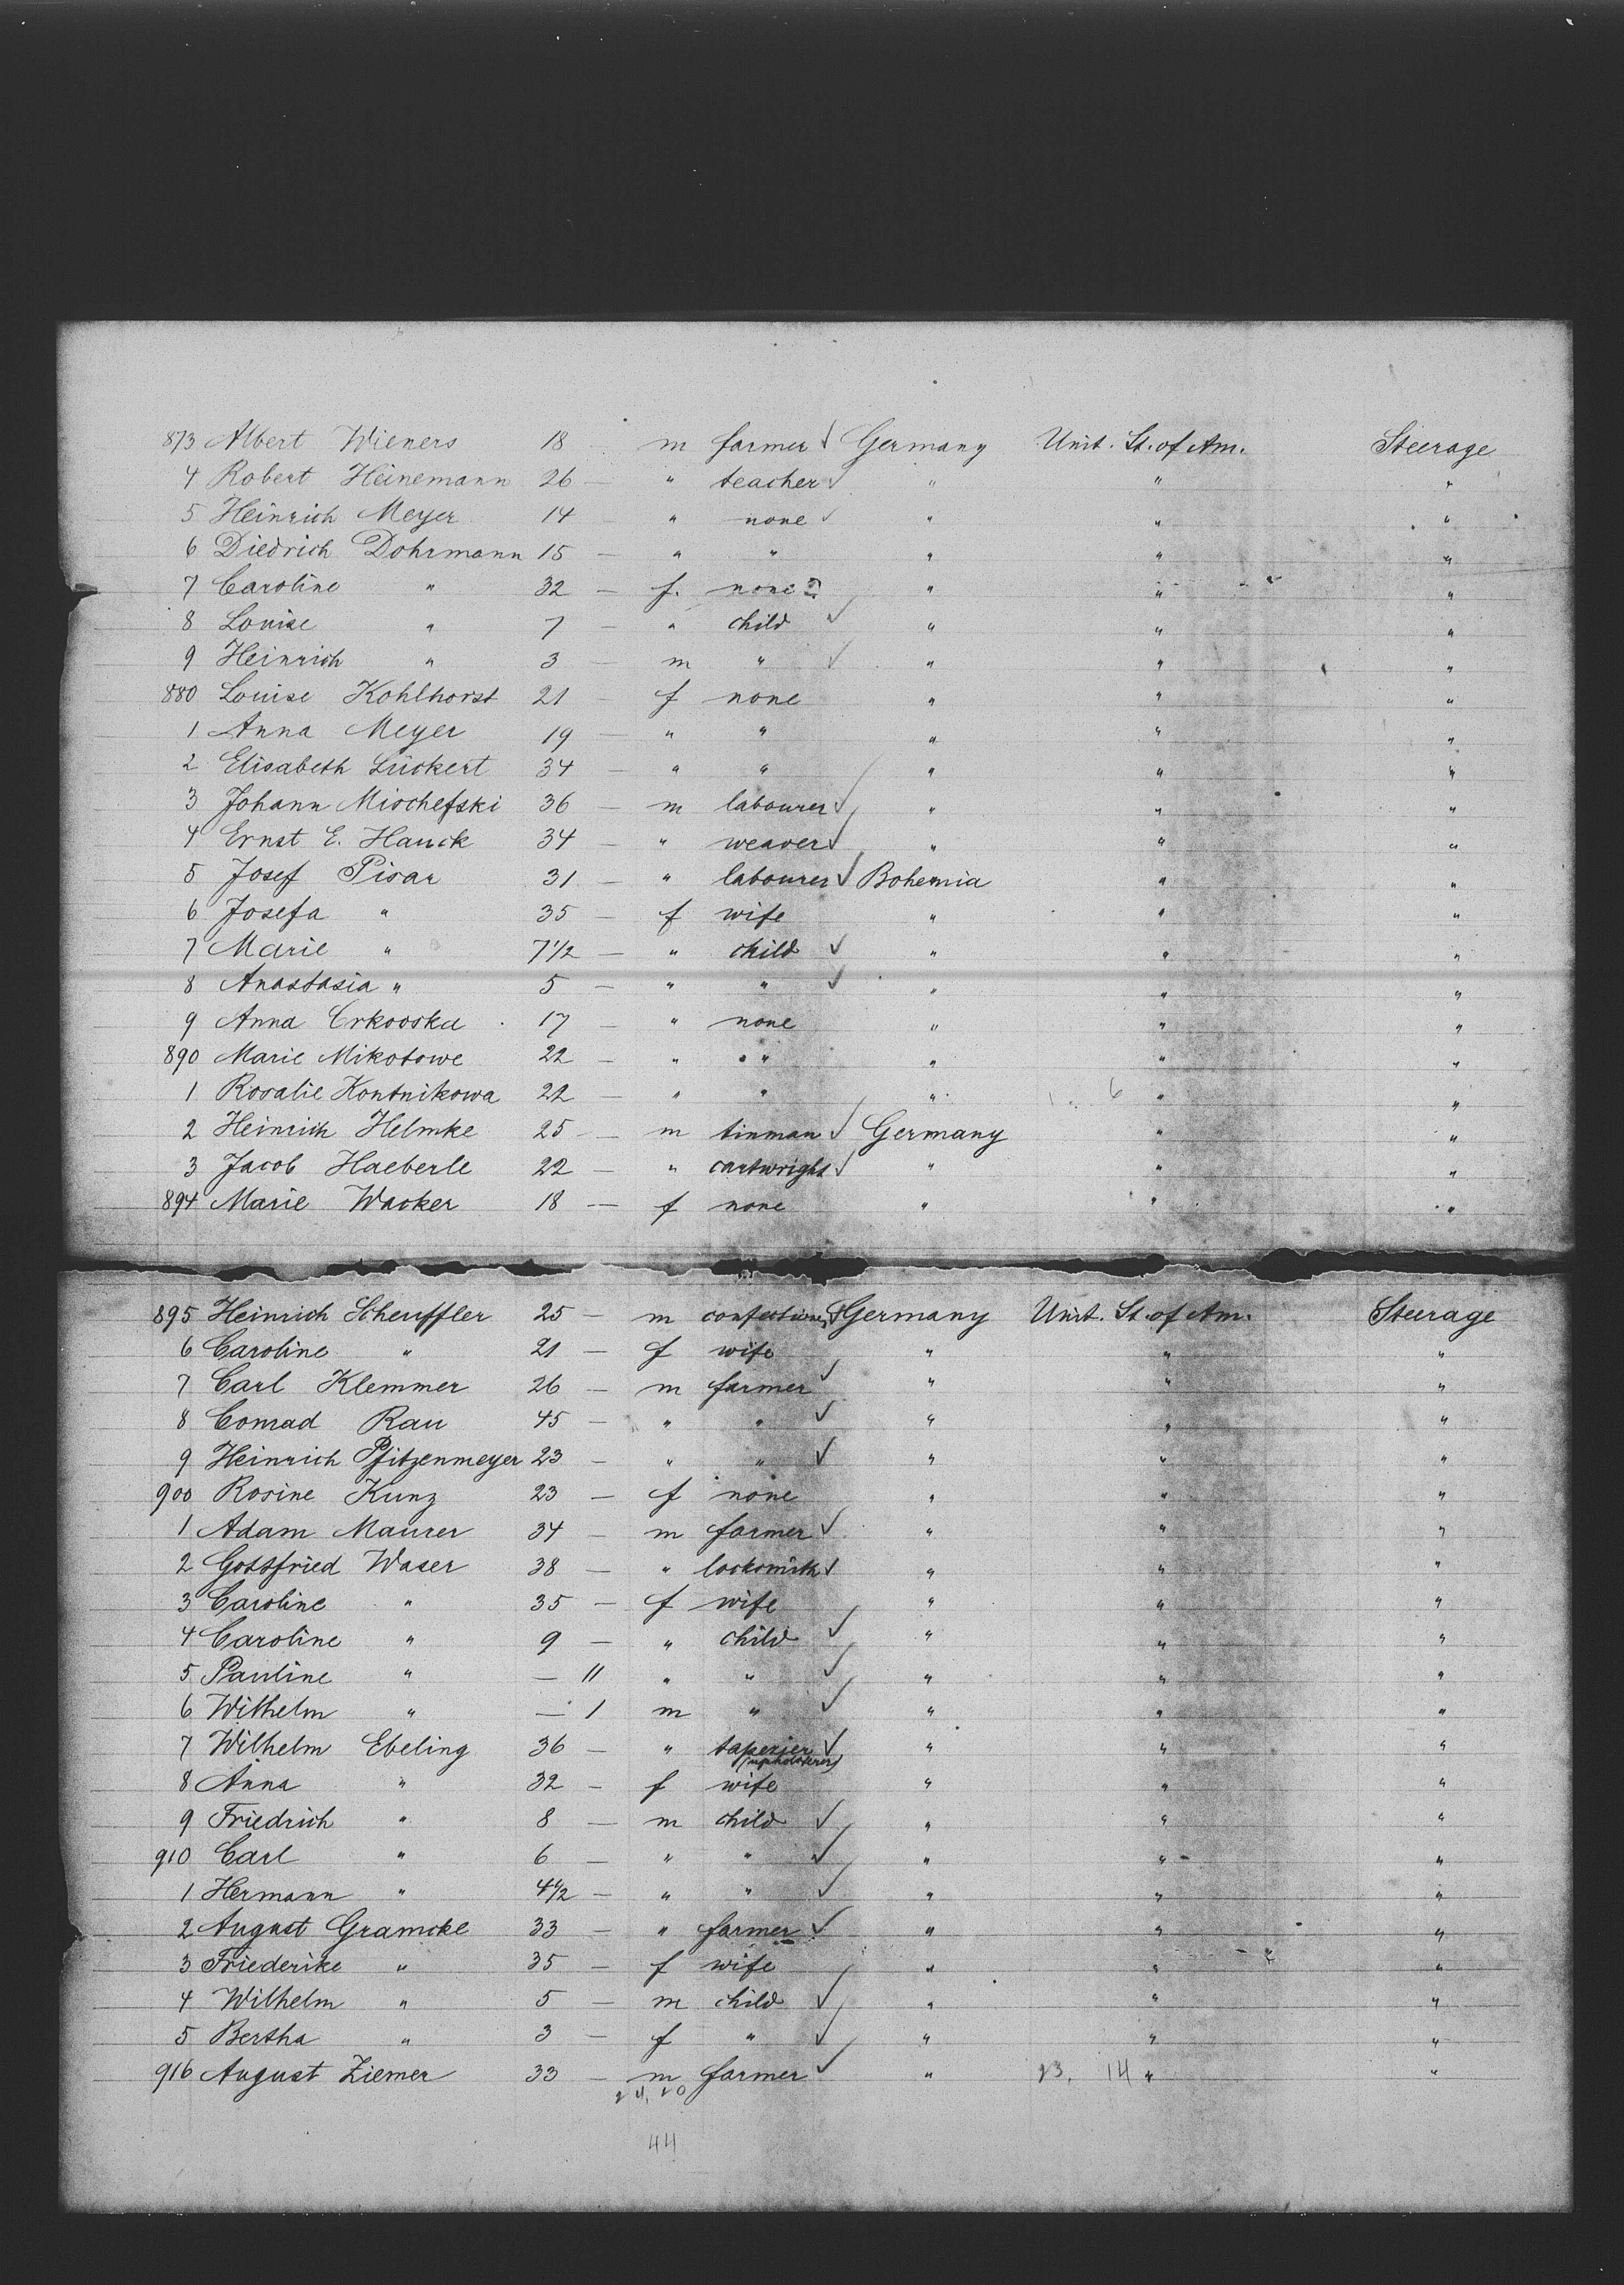 873 Albert Wieners 18 m farmer ✓ Germany Unit. St. of Am. Steerage
4 Robert Heinemann 26 — " teacher ✓ " " "
5 Heinrich Meyer 14 — " none ✓ " " "
6 Diedrich Dohrmann 15 — " " " " "
7 Caroline " 32 — f. none " " "
8 Louise " 7 — " child ✓ " " "
9 Heinrich " 3 — m " ✓ " " "
880 Louise Kohlhorst 21 — f none " " "
1 Anna Meyer 19 — " " " " "
2 Elisabeth Lückert 34 — " " " " "
3 Johann Mischefski 36 — m labourer ✓ " " "
4 Ernst E. Hauck 34 — " weaver ✓ " " "
5 Josef Pisar 31 — " labourer ✓ Bohemia " "
6 Josefa " 35 — f wife " " "
7 Marie " 7 1/2 — " child ✓ " " "
8 Anastasia " 5 — " " ✓ " " "
9 Anna Crkovska 17 — " none " " "
890 Marie Mikotowe 22 — " " " " "
1 Rosalie Kontnikowa 22 — " " " 6 " "
2 Heinrich Helmke 25 — m tinman ✓ Germany " "
3 Jacob Haeberle 22 — " cartwright ✓ " " "
894 Marie Wacker 18 — f none " " "
895 Heinrich Scheuffler 25 — m confectioner ✓ Germany Unit. St. of Am. Steerage
6 Caroline " 21 — f wife " " "
7 Carl Klemmer 26 — m farmer ✓ " " "
8 Conrad Rau 45 — " " ✓ " " "
9 Heinrich Pfitzenmeyer 23 — " " ✓ " " "
900 Rosine Kunz 23 — f none " " "
1 Adam Maurer 34 — m farmer ✓ " " "
2 Gottfried Waser 38 — " locksmith ✓ " " "
3 Caroline " 35 — f wife " " "
4 Caroline " 9 — " child ✓ " " "
5 Pauline " — 11 " " ✓ " " "
6 Wilhelm " — 1 m " ✓ " " "
7 Wilhelm Ebeling 36 — " tapezier ✓ " " "
(upholsterer)
8 Anna " 32 — f wife " " "
9 Friedrich " 8 — m child ✓ " " "
910 Carl " 6 — " " ✓ " " "
1 Hermann " 4 1/2 — " " ✓ " " "
2 August Gramcke 33 — " farmer ✓ " " "
3 Friederike " 35 — f wife " " "
4 Wilhelm " 5 — m child ✓ " " "
5 Bertha " 3 — f " ✓ " " "
916 August Ziemer 33 — m farmer ✓ " 23. 14 " "
24, 20
44